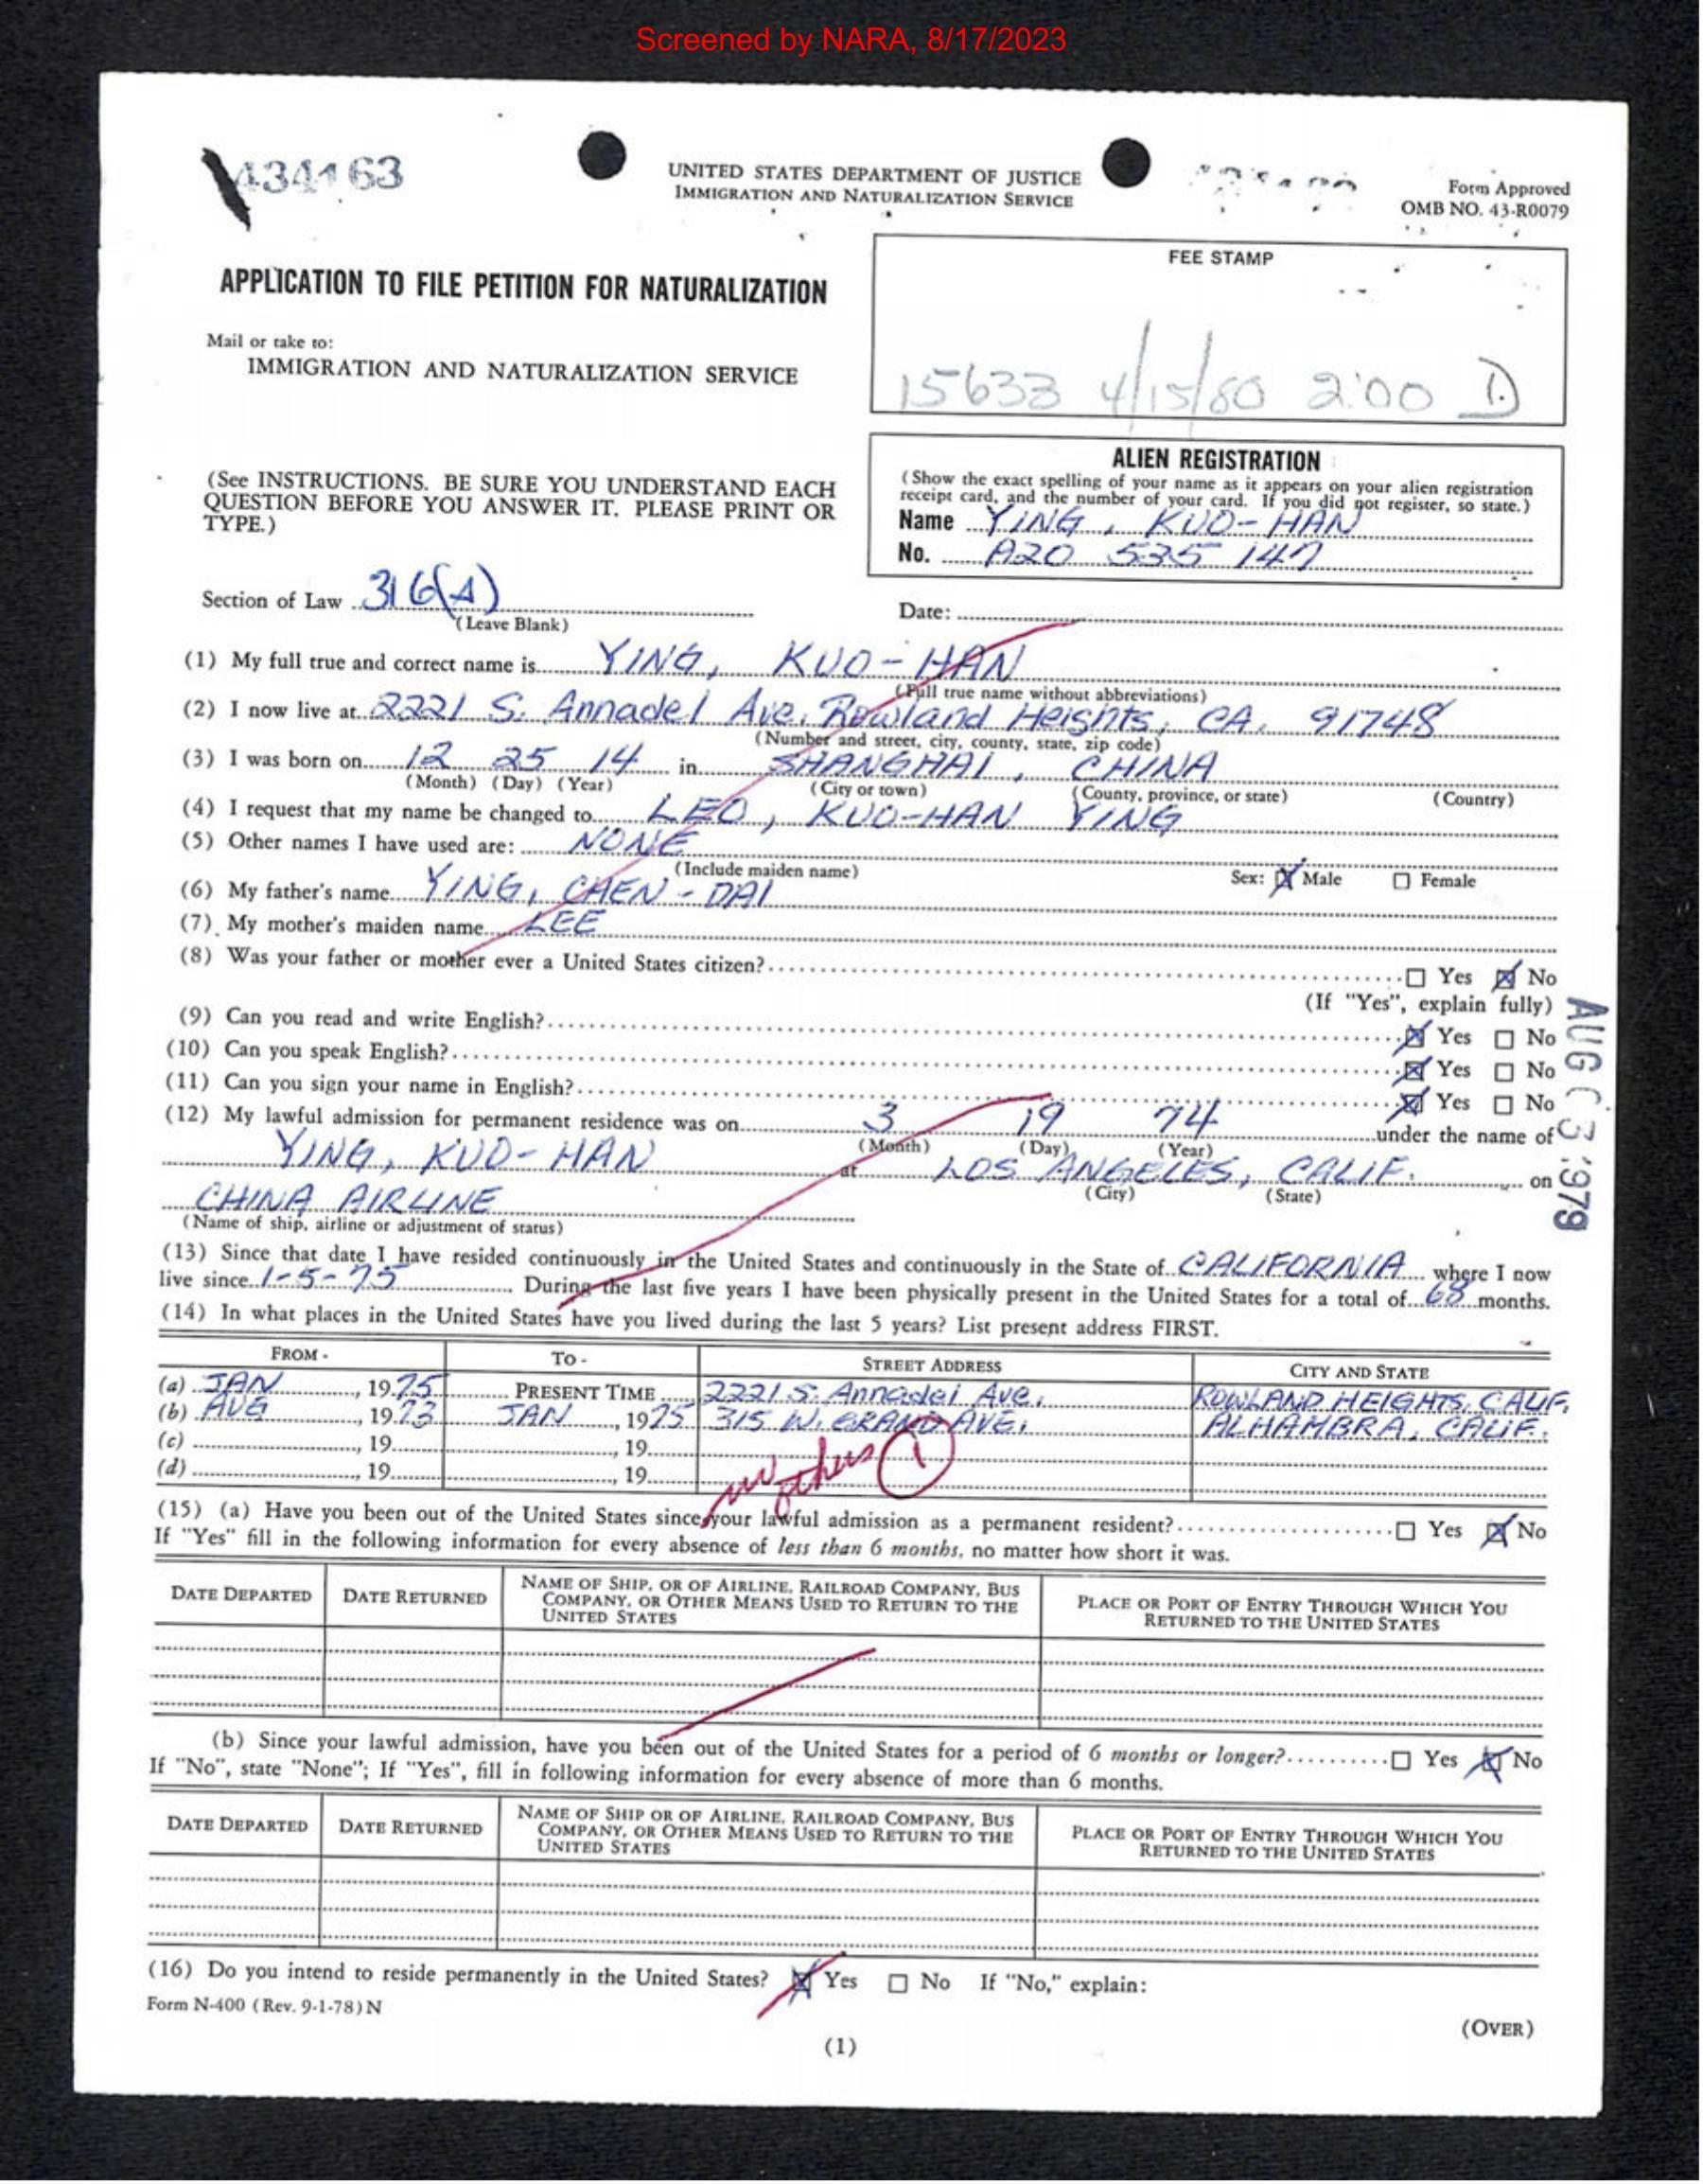 Screened by NARA, 8/17/2023
434163
UNITED STATES DEPARTMENT OF JUSTICE
IMMIGRATION AND NATURALIZATION SERVICE
Form Approved
OMB NO. 43-R0079
APPLICATION TO FILE PETITION FOR NATURALIZATION
Mail or take to:
IMMIGRATION AND NATURALIZATION SERVICE
FEE STAMP
15633 4/15/80 2:00 D
(See INSTRUCTIONS. BE SURE YOU UNDERSTAND EACH
QUESTION BEFORE YOU ANSWER IT. PLEASE PRINT OR
TYPE.)
ALIEN REGISTRATION
(Show the exact spelling of your name as it appears on your alien registration
receipt card, and the number of your card. If you did not register, so state.)
Name YING, KUO-HAN
No. A20 535 147
Section of Law 316(A)
(Leave Blank)
Date:
(1) My full true and correct name is YING, KUO-HAN
(Full true name without abbreviations)
(2) I now live at 2221 S. Annadel Ave. Rowland Heights, CA. 91748
(Number and street, city, county, state, zip code)
(3) I was born on 12 25 14 in SHANGHAI, CHINA
(Month) (Day) (Year) (City or town) (County, province, or state) (Country)
(4) I request that my name be changed to LEO, KUO-HAN YING
(5) Other names I have used are: NONE
(Include maiden name) Sex: ☒ Male ☐ Female
(6) My father's name YING, CHEN-DAI
(7) My mother's maiden name LEE
(8) Was your father or mother ever a United States citizen? ☐ Yes ☒ No
(If "Yes", explain fully)
(9) Can you read and write English? ☒ Yes ☐ No
(10) Can you speak English? ☒ Yes ☐ No
(11) Can you sign your name in English? ☒ Yes ☐ No
(12) My lawful admission for permanent residence was on 3 19 74 under the name of
(Month) (Day) (Year)
YING, KUO-HAN at LOS ANGELES, CALIF. on
(City) (State)
CHINA AIRLINE
(Name of ship, airline or adjustment of status)
AUG 3 1979
(13) Since that date I have resided continuously in the United States and continuously in the State of CALIFORNIA where I now
live since 1-5-75 During the last five years I have been physically present in the United States for a total of 68 months.
(14) In what places in the United States have you lived during the last 5 years? List present address FIRST.
FROM - TO - STREET ADDRESS CITY AND STATE
(a) JAN, 1975 PRESENT TIME 2221 S. Annadel Ave. ROWLAND HEIGHTS, CALIF.
(b) AUG, 1973 JAN, 1975 315 W. GRAND AVE. ALHAMBRA, CALIF.
(c) , 19 , 19
(d) , 19 , 19
no others 1
(15) (a) Have you been out of the United States since your lawful admission as a permanent resident? ☐ Yes ☒ No
If "Yes" fill in the following information for every absence of less than 6 months, no matter how short it was.
DATE DEPARTED DATE RETURNED NAME OF SHIP, OR OF AIRLINE, RAILROAD COMPANY, BUS COMPANY, OR OTHER MEANS USED TO RETURN TO THE UNITED STATES PLACE OR PORT OF ENTRY THROUGH WHICH YOU RETURNED TO THE UNITED STATES
(b) Since your lawful admission, have you been out of the United States for a period of 6 months or longer? ☐ Yes ☒ No
If "No", state "None"; If "Yes", fill in following information for every absence of more than 6 months.
DATE DEPARTED DATE RETURNED NAME OF SHIP OR OF AIRLINE, RAILROAD COMPANY, BUS COMPANY, OR OTHER MEANS USED TO RETURN TO THE UNITED STATES PLACE OR PORT OF ENTRY THROUGH WHICH YOU RETURNED TO THE UNITED STATES
(16) Do you intend to reside permanently in the United States? ☒ Yes ☐ No If "No," explain:
Form N-400 (Rev. 9-1-78)N
(OVER)
(1)